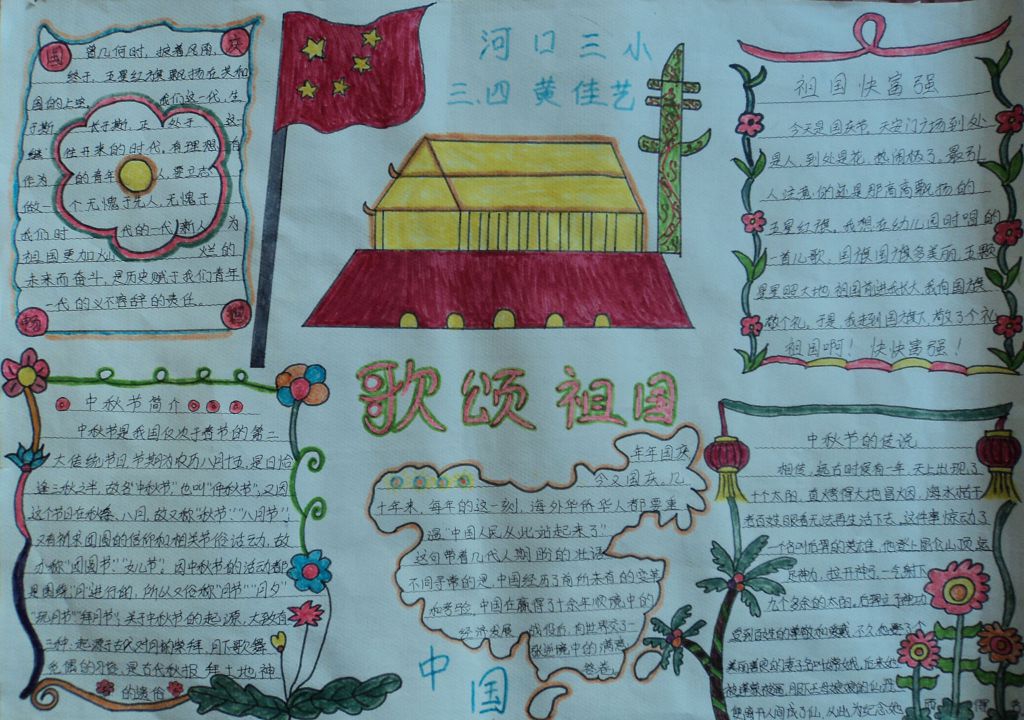 国 庆
曾几何时,披着风雨,
终于,五星红旗飘扬在共和
国的上空。 我们这一代,生
于斯 长于斯,正 处于 这
继 往开来的时代,有理想、有
作为 的青年 人,要立志
做一 个无愧于先人,无愧于
我们时 代的一代新人 为
祖国更加灿 烂的
未来而奋斗,是历史赋于我们青年
一代的义不容辞的责任。
畅 想
河口三小
三.四 黄佳艺
祖国快富强
今天是国庆节,天安门广场到处
是人,到处是花,热闹极了。最引
人注意的还是那高高飘扬的
五星红旗。我想在幼儿园时唱的
一首儿歌,国旗国旗多美丽,五颗
星星照大地,祖国前进我长大,我向国旗
敬个礼。于是,我走到国旗下,敬了个礼
祖国啊!快快富强!
歌颂祖国
中秋节简介
中秋节是我国仅次于春节的第二
大传统节日,节期为农历八月十五,是日恰
逢三秋之半,故名“中秋节”,也叫“仲秋节”,又因
这个节日在秋季、八月,故又称“秋节”“八月节”,
又有祈求团圆的信仰和相关节俗活动,故
亦称“团圆节”“女儿节”。因中秋节的活动都
是围绕“月”进行的,所以又俗称“月节”“月夕”
“玩月节”“拜月节”。关于中秋节的起源,大致有
三种:起源于古代对月的崇拜、月下歌舞
觅偶的习俗,是古代秋报 拜土地神
的遗俗
年年国庆
今又国庆,几
十年来,每年的这一刻,海外华侨华人都要重
温“中国人民从此站起来了”
这句带着几代人期盼的壮语
不同寻常的是,中国经历了前所未有的变革
和考验,中国在赢得了十余年顺境中的
经济发展 成绩后,向世界交了一
张逆境中的满意
答卷
中国
中秋节的传说
相传,远古时候有一年,天上出现了
十个太阳,直烤得大地冒大烟,海水枯干
老百姓眼看无法再生活下去,这件事惊动了
一个名叫后羿的英雄,他登上昆仑山顶,运
足神力,拉开神弓,一气射下
九个多余的太阳,后羿立下神功
受到百姓的尊敬和爱戴,不久,他娶了个
美丽善良的妻子名叫嫦娥,后来她